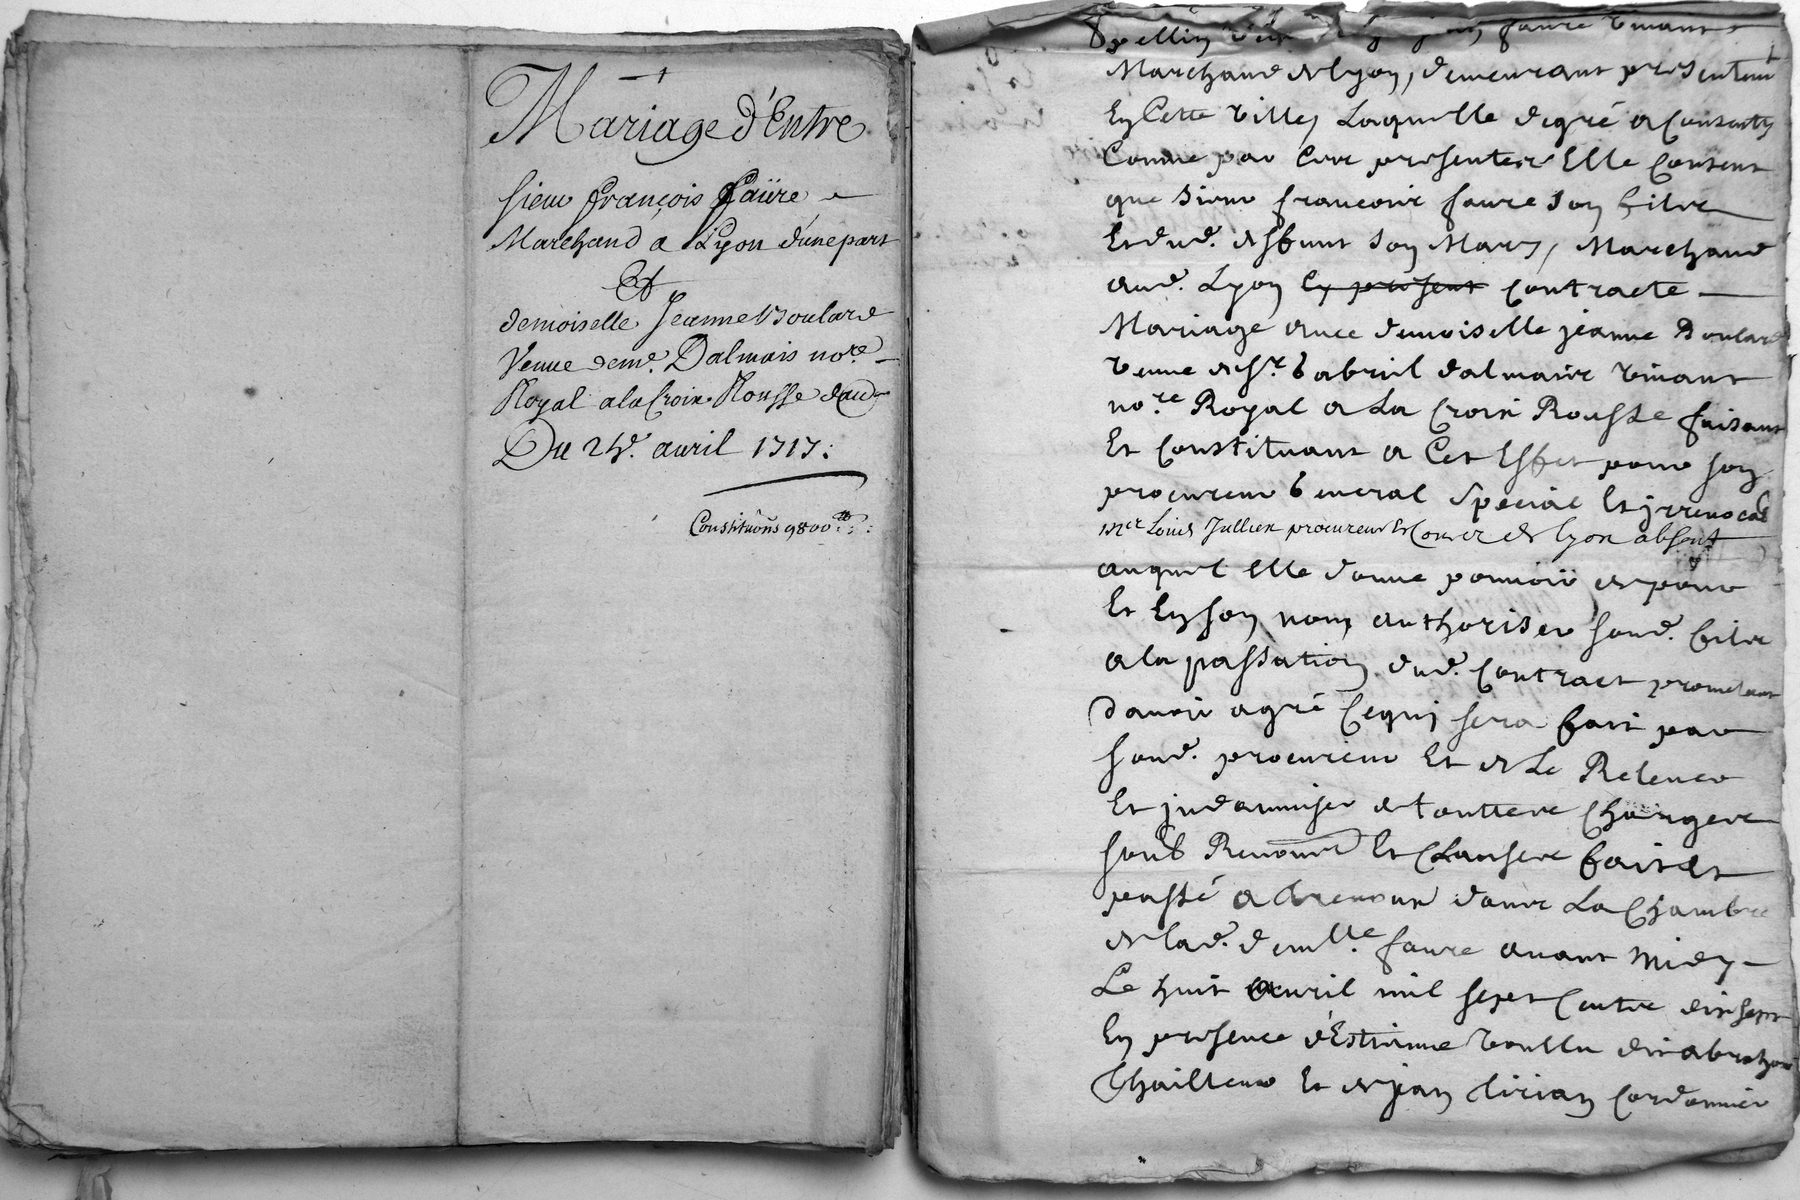 Mariage d'Entre
sieur françois faüre
Marchand a Lyon d'une part
Et
demoiselle Jeanne Boulard
Veuve de me. Dalmais nore.
Royal a la Croix Rousse d'aud
Du 24e. avril 1717:
Constituõns 9800 tt
faure vivant
Marchand de lyon, demeurant presentemt
En Cette ville, Laquelle de gré a Consenty
Comme par Ces presentes Elle Consent
que sieur francois faure son fils
Et dud. deffunt son Mary, Marchand
aud. Lyon contracte
Mariage avec demoiselle jeanne Boulard
veuve de Sr. Gabriel dalmais vivant
nore. Royal a La Croix Rousse faisant
Et Constituant a Cet Effet pour son
procureur General Special Et jrrevocable
Mer Louis Jullien procureur Es Cours de lyon absent
auquel Elle donne pouvoir de pour
Et En son nom authoriser sond. fils
a la passation dud. Contract promettant
d'avoir agré Ce quj sera fait par
sond. procureur Et de Le Relever
Et jndamniser de touttes Charges
soub Renon Et Clauses fait Et
passé a dans La Chambre
de lad. demlle. faure avant Midy
Le huit avril mil sept Cents dix sept
En presence d'Estienne dit abraham
thailleur Et de jean Cordonnier